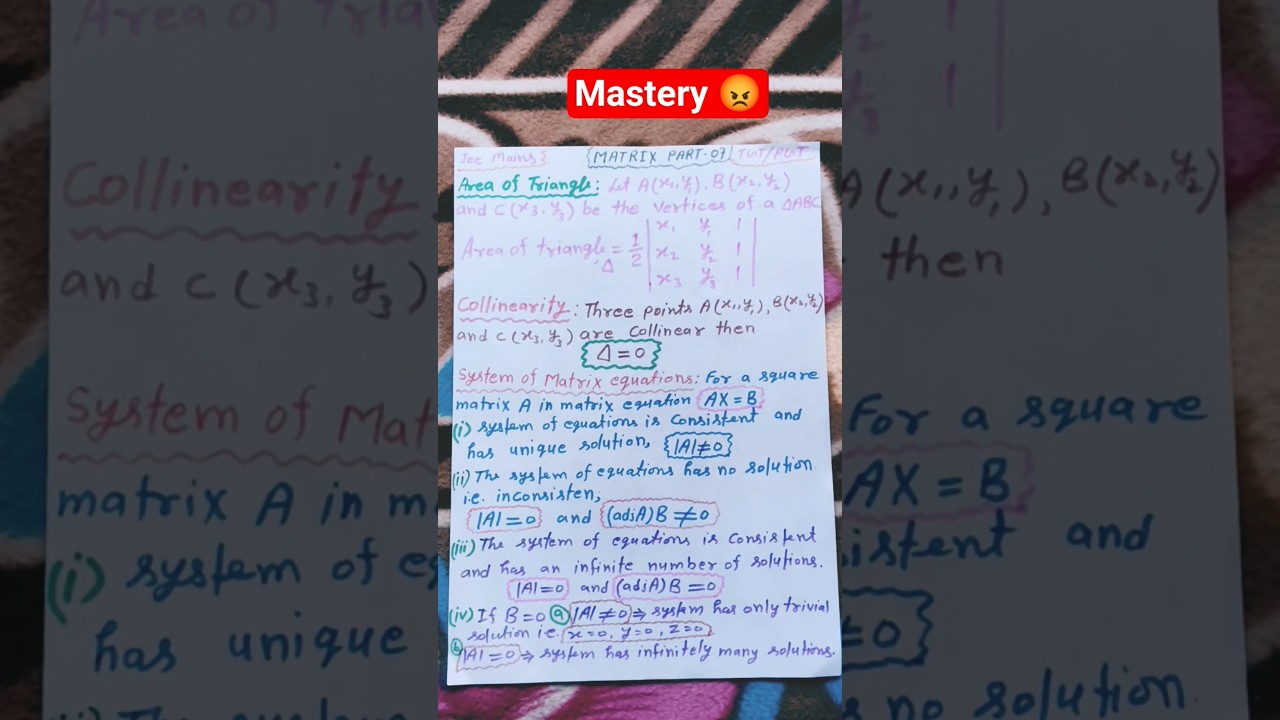 Mastery 😡
Jee Mains
MATRIX PART-07
TGT/PGT
Area of Triangle: Let A(x₁,y₁), B(x₂,y₂)
and C(x₃,y₃) be the vertices of a ΔABC
Area of triangle Δ = 1/2 | x₁ y₁ 1 |
| x₂ y₂ 1 |
| x₃ y₃ 1 |
Collinearity: Three points A(x₁,y₁), B(x₂,y₂)
and C(x₃,y₃) are collinear then
Δ = 0
System of Matrix equations: For a square
matrix A in matrix equation AX = B
(i) system of equations is consistent and
has unique solution, |A| ≠ 0
(ii) The system of equations has no solution
i.e. inconsisten,
|A| = 0 and (adjA)B ≠ 0
(iii) The system of equations is consistent
and has an infinite number of solutions.
|A| = 0 and (adjA)B = 0
(iv) If B = 0 (a) |A| ≠ 0 ⇒ system has only trivial
solution i.e. x=0, y=0, z=0
(b) |A| = 0 ⇒ system has infinitely many solutions.